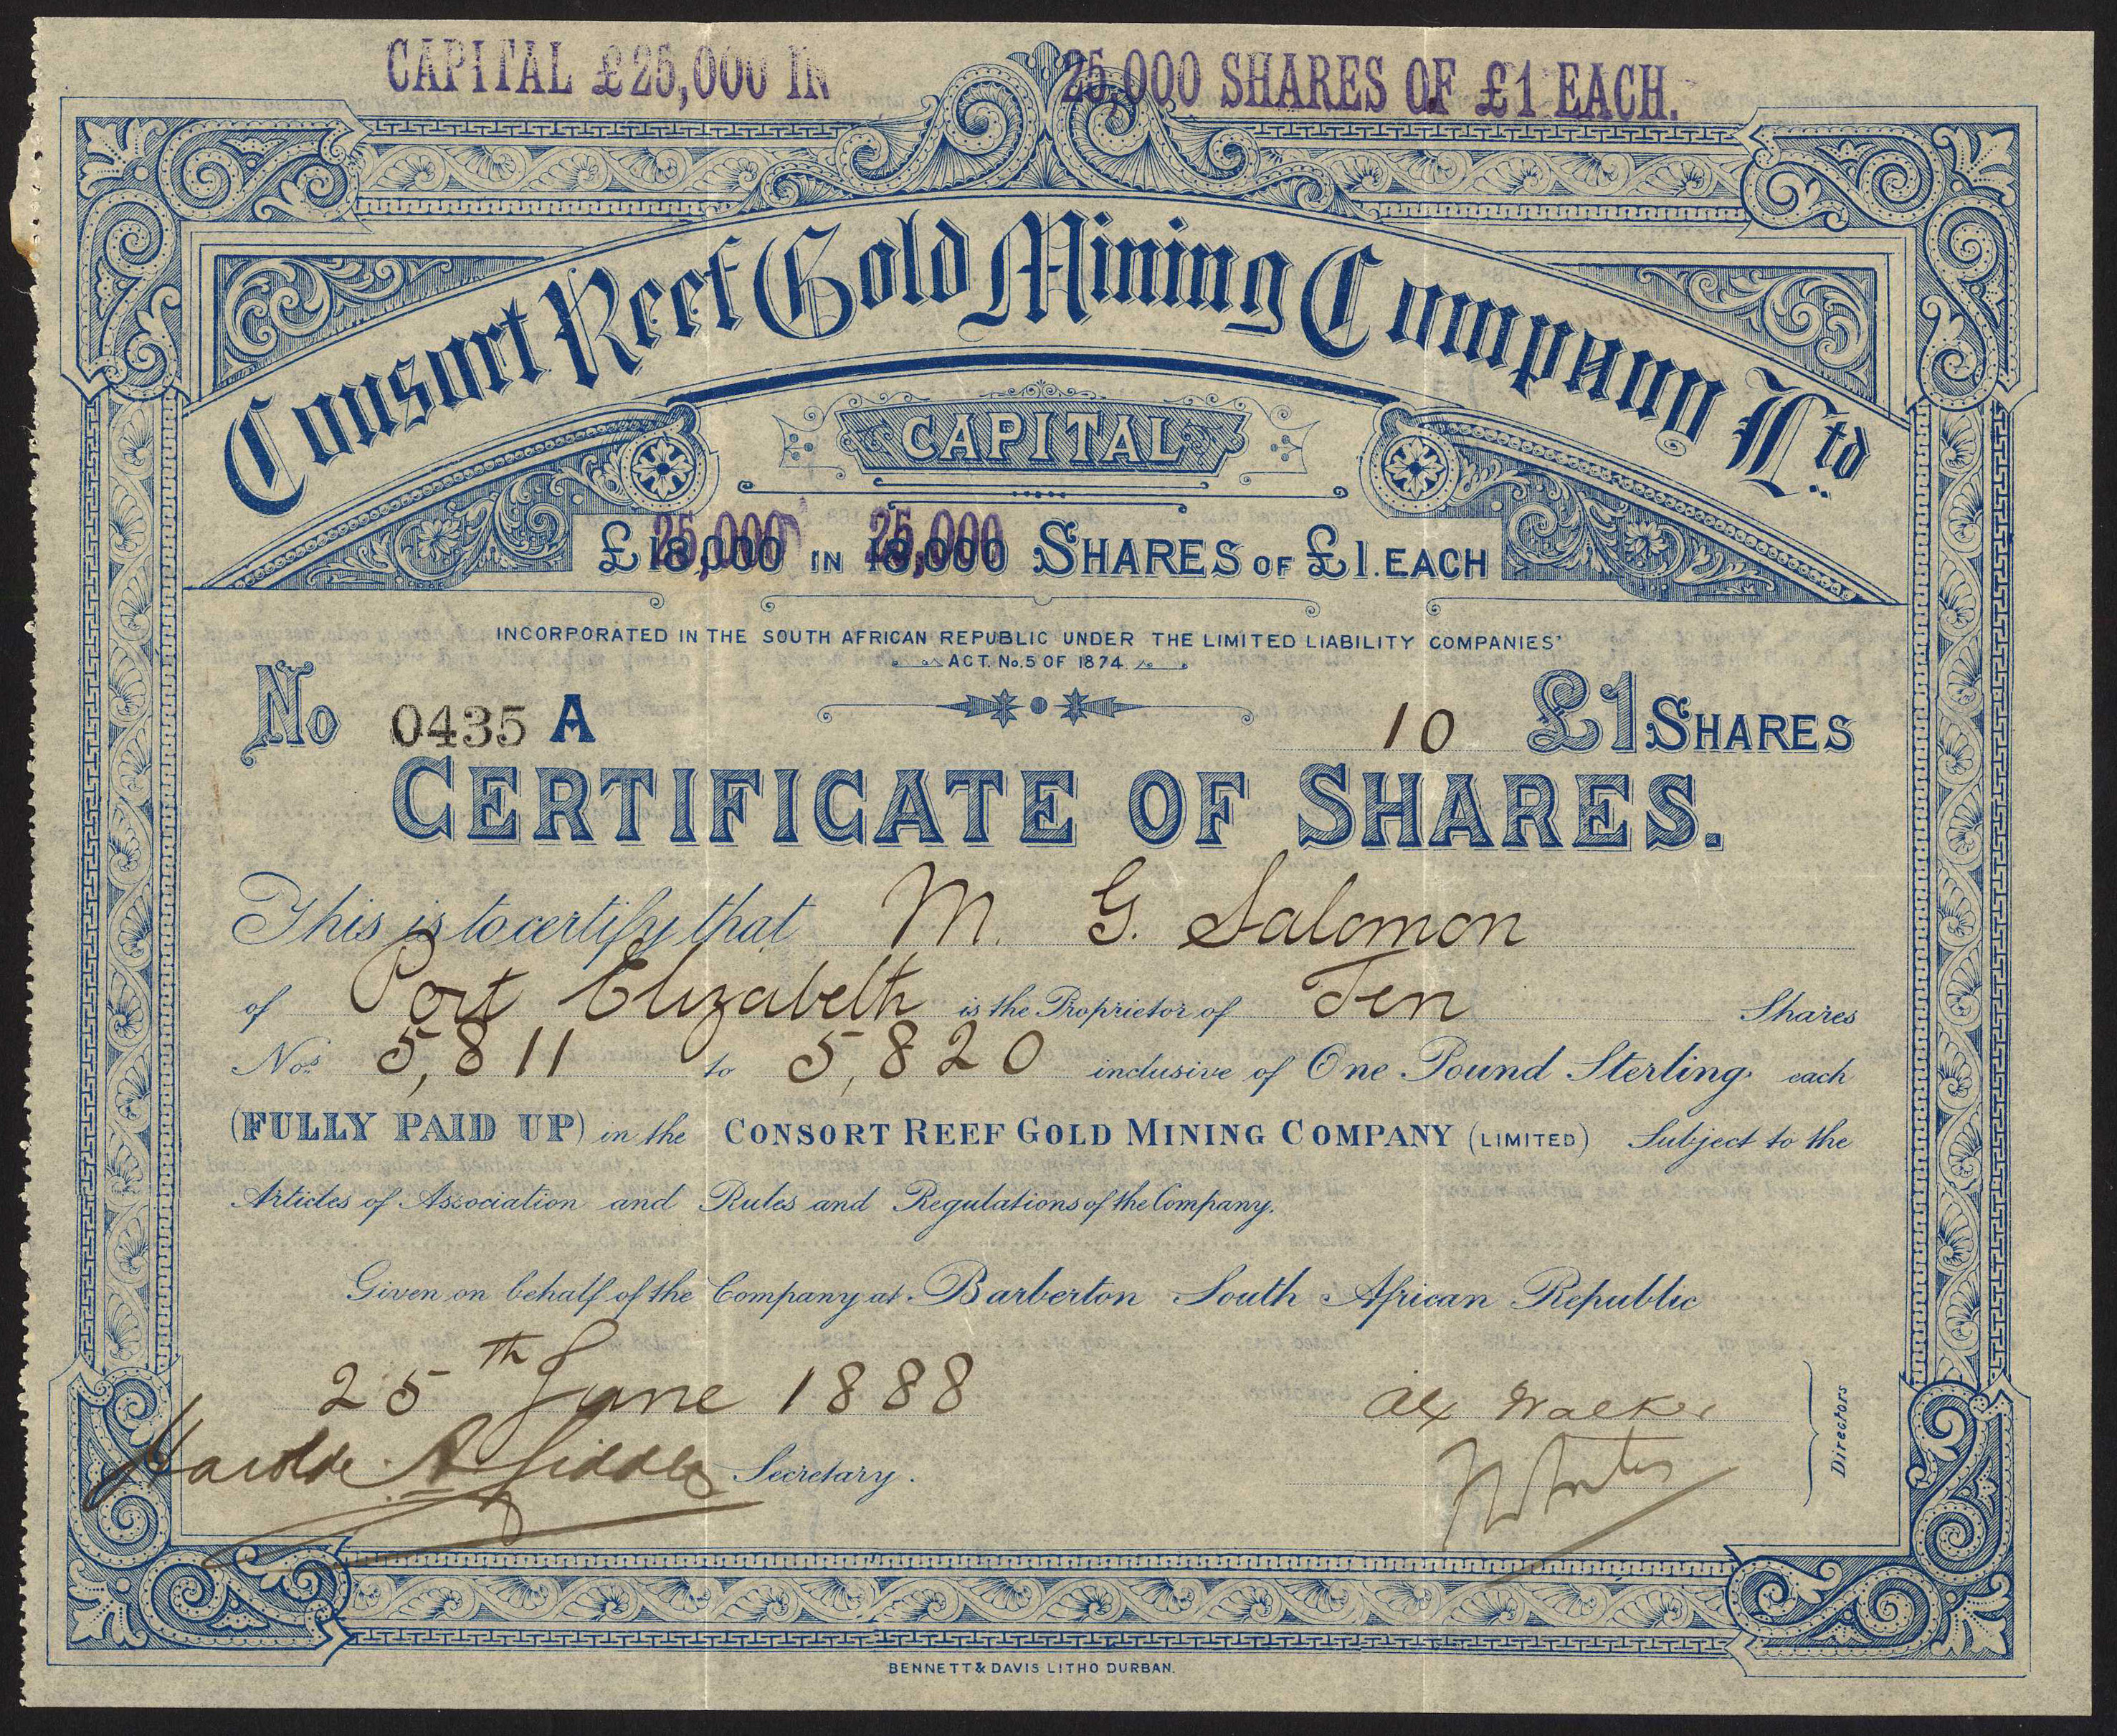 CAPITAL £25,000 IN 25,000 SHARES OF £1 EACH.
Consort Reef Gold Mining Company Ltd
CAPITAL
£ 25,000 IN 25,000 SHARES OF £1. EACH
INCORPORATED IN THE SOUTH AFRICAN REPUBLIC UNDER THE LIMITED LIABILITY COMPANIES'
ACT. No. 5 OF 1874.
No 0435 A 10 £1 SHARES
CERTIFICATE OF SHARES.
This is to certify that M. G. Salomon
of Port Elizabeth is the Proprietor of Ten Shares
Nos. 5,811 to 5,820 inclusive of One Pound Sterling each
(FULLY PAID UP) in the CONSORT REEF GOLD MINING COMPANY (LIMITED) Subject to the
Articles of Association and Rules and Regulations of the Company.
Given on behalf of the Company at Barberton South African Republic
25th June 1888
Alex Walker
Secretary.
Directors
BENNETT & DAVIS LITHO DURBAN.